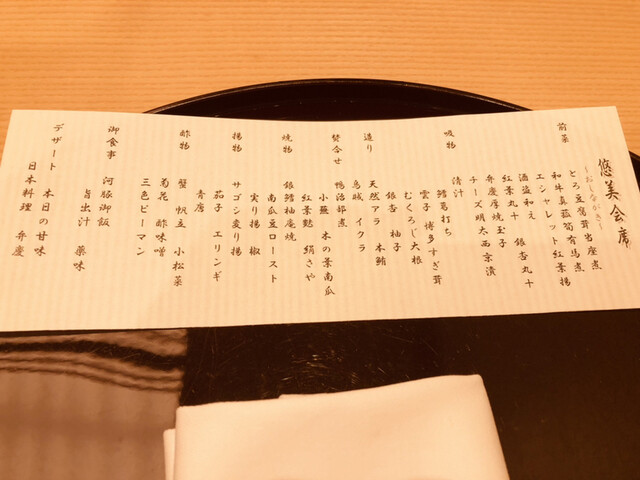 悠美会席
〜おしながき〜
前菜
とろ豆腐茸出座煮
和牛真菰筍有馬煮
エシャレット紅葉揚
酒盗和え 銀杏丸十
紅葉丸十
弁慶厚焼玉子
チーズ明太西京漬
吸物
清汁
鱈葛打ち
雲子 博多すぎ茸
むくろじ大根
銀杏 柚子
造り
天然アラ 本鮪
烏賊 イクラ
焚合せ
鴨治部煮
小蕪 木の葉南瓜
紅葉麩 絹さや
焼物
銀鱈柚庵焼
南瓜豆ロースト
実り揚 椒
揚物
サゴシ変り揚
茄子 エリンギ
青唐
酢物
蟹 帆立 小松菜
菊花 酢味噌
三色ピーマン
御食事
河豚御飯
旨出汁 薬味
デザート
本日の甘味
日本料理 弁慶